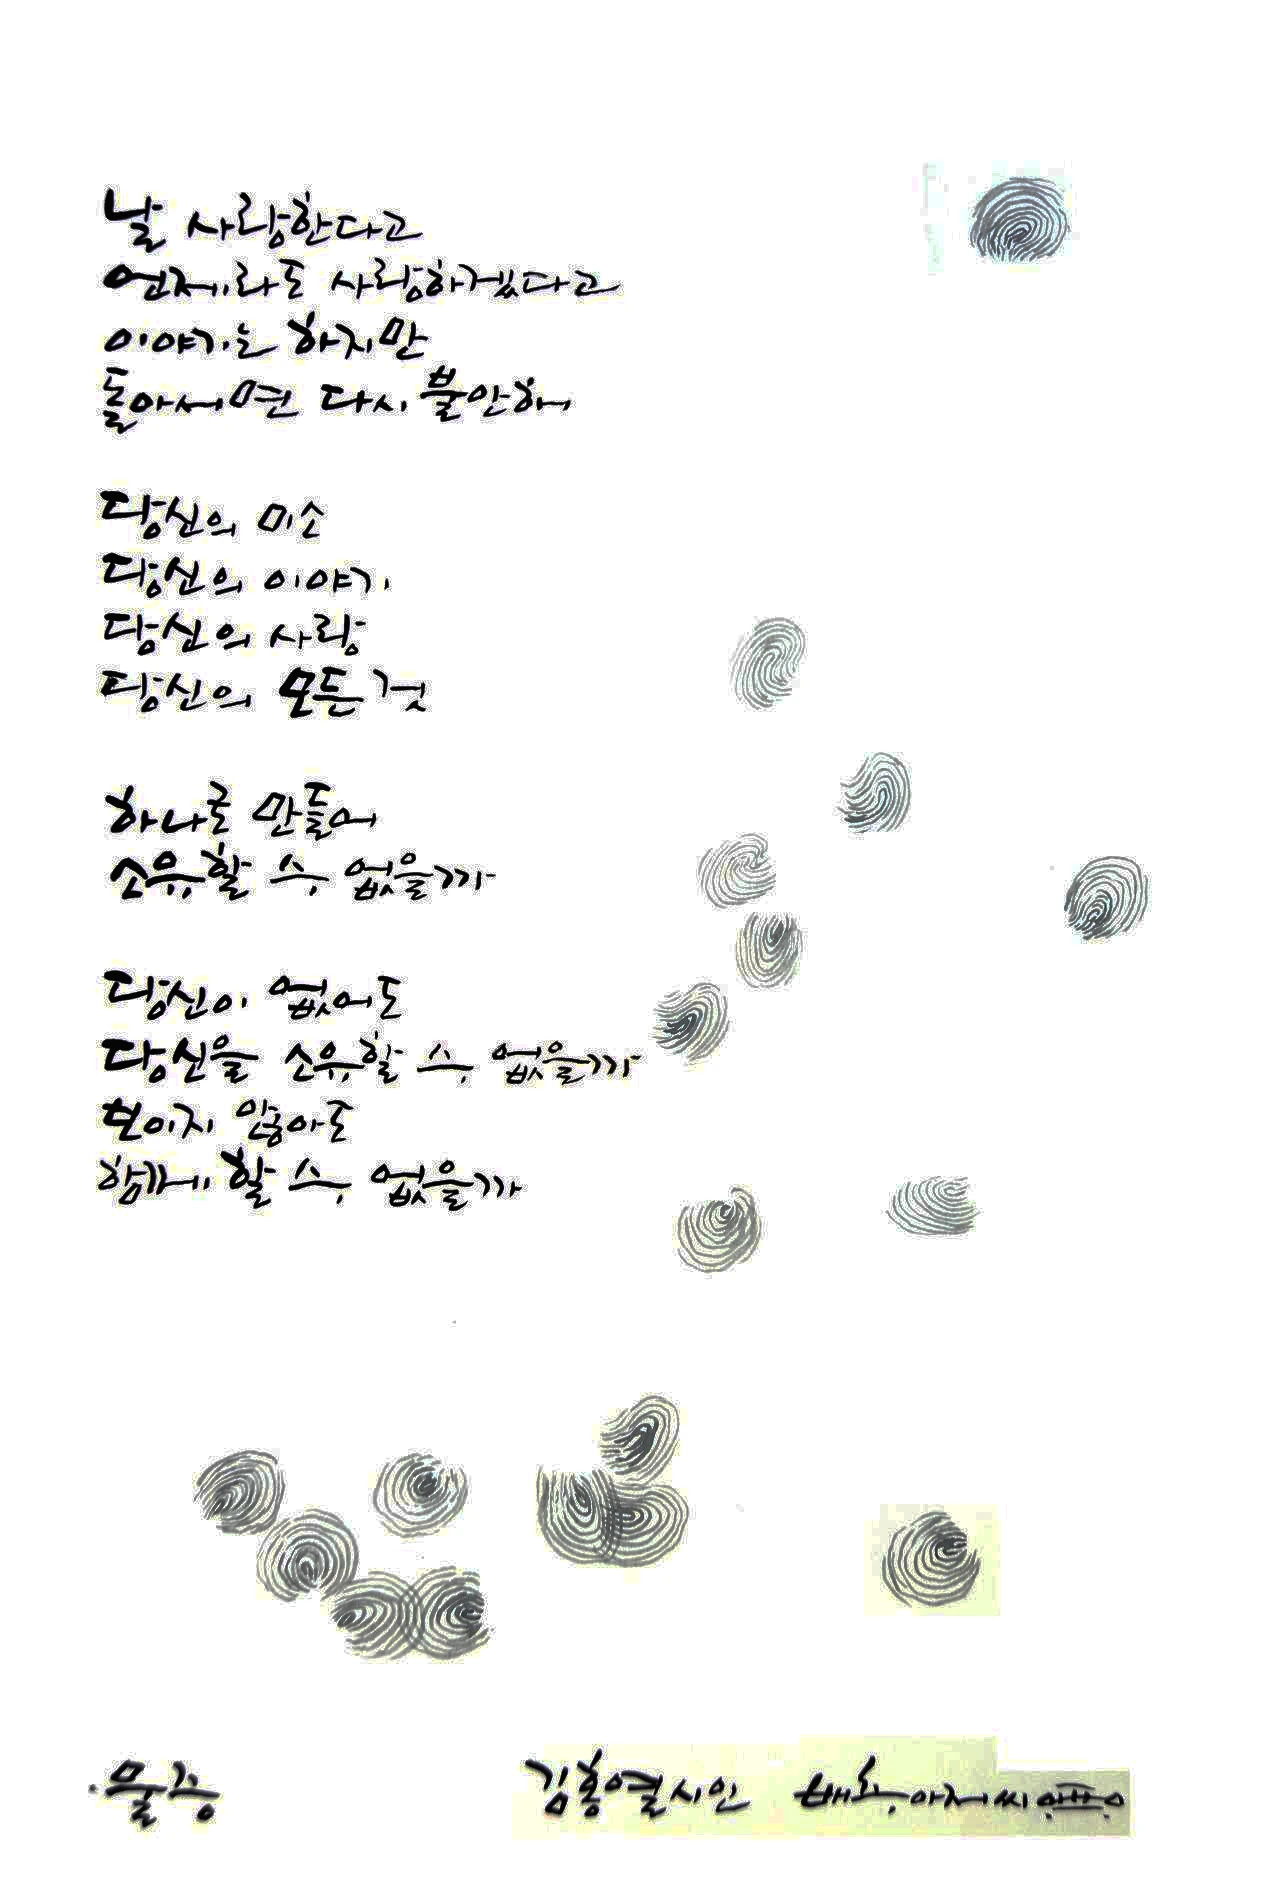 날 사랑한다고
언제라도 사랑하겠다고
이야기는 하지만
돌아서면 다시 불안해
당신의 미소
당신의 이야기
당신의 사랑
당신의 모든 것
하나로 만들어
소유할 수 없을까
당신이 없어도
당신을 소유할 수 없을까
보이지 않아도
함께 할 수 없을까
김홍열 시인